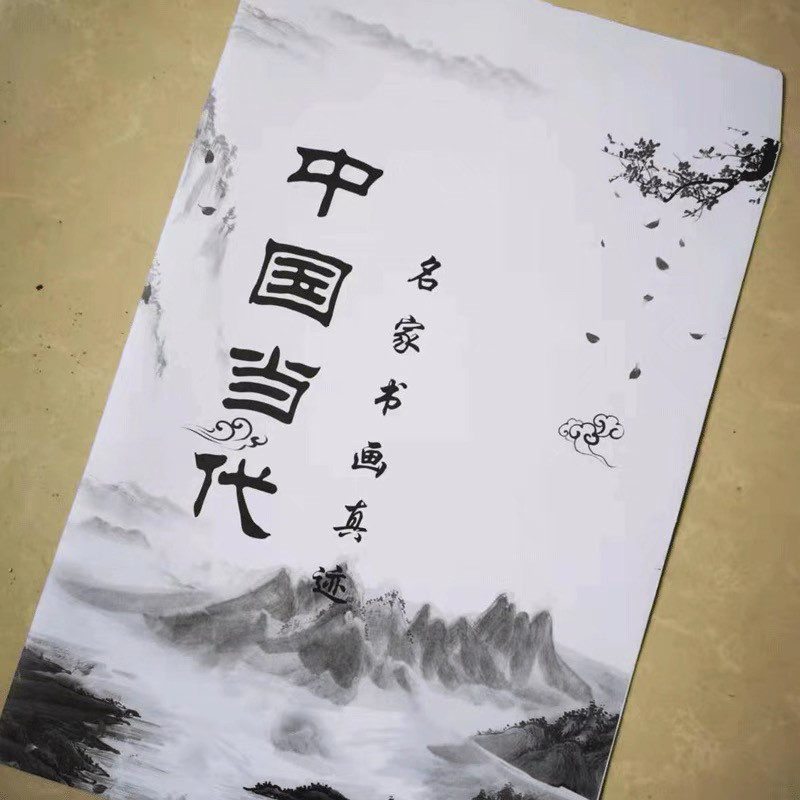 中国当代
名家书画真迹